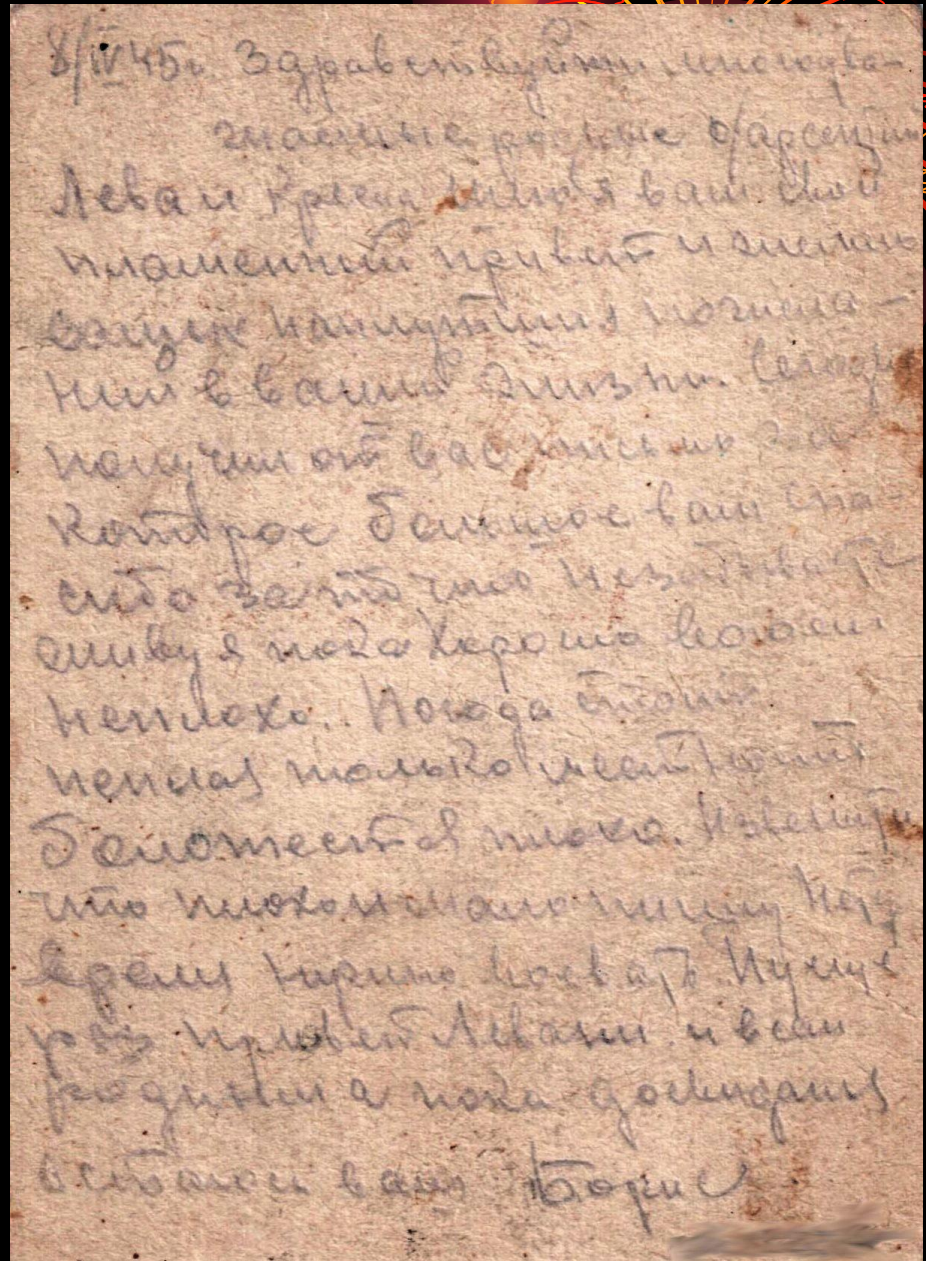 8/IV 45г. Здравствуйти многоува-
жаемые родные
Лева и шлю я вам свой
пламенный привет и желаю
наилутшия пожела-
ний в вашей жизни. Сегодня
получил от вас письмо за
которое большое вам спа-
сибо за то что незабываете
живу я пока хорошо воюем
неплохо. Погода стоит
теплая только местность
болотестая плохо. Извените
что плохо и мало пишу нету
время нужно воевать
раз привет и всем
родным а пока досвидания
остаюсь ваш Борис